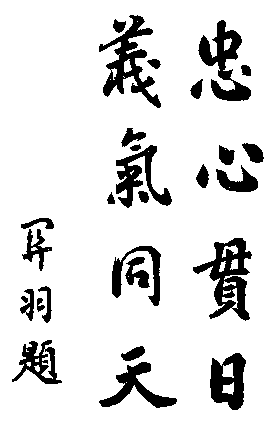 忠心貫日
義氣同天
关羽題